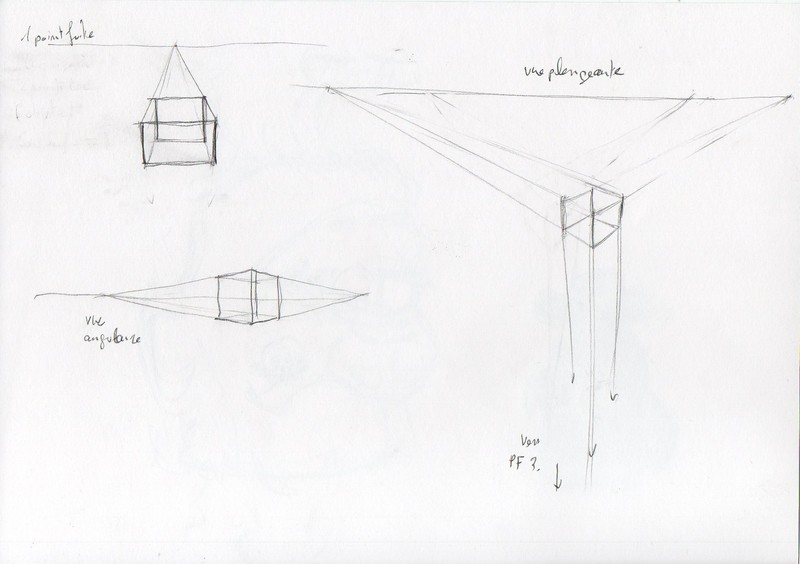 1 point fuite
vue plongeante
vue
angulaire
Vers
PF 3.